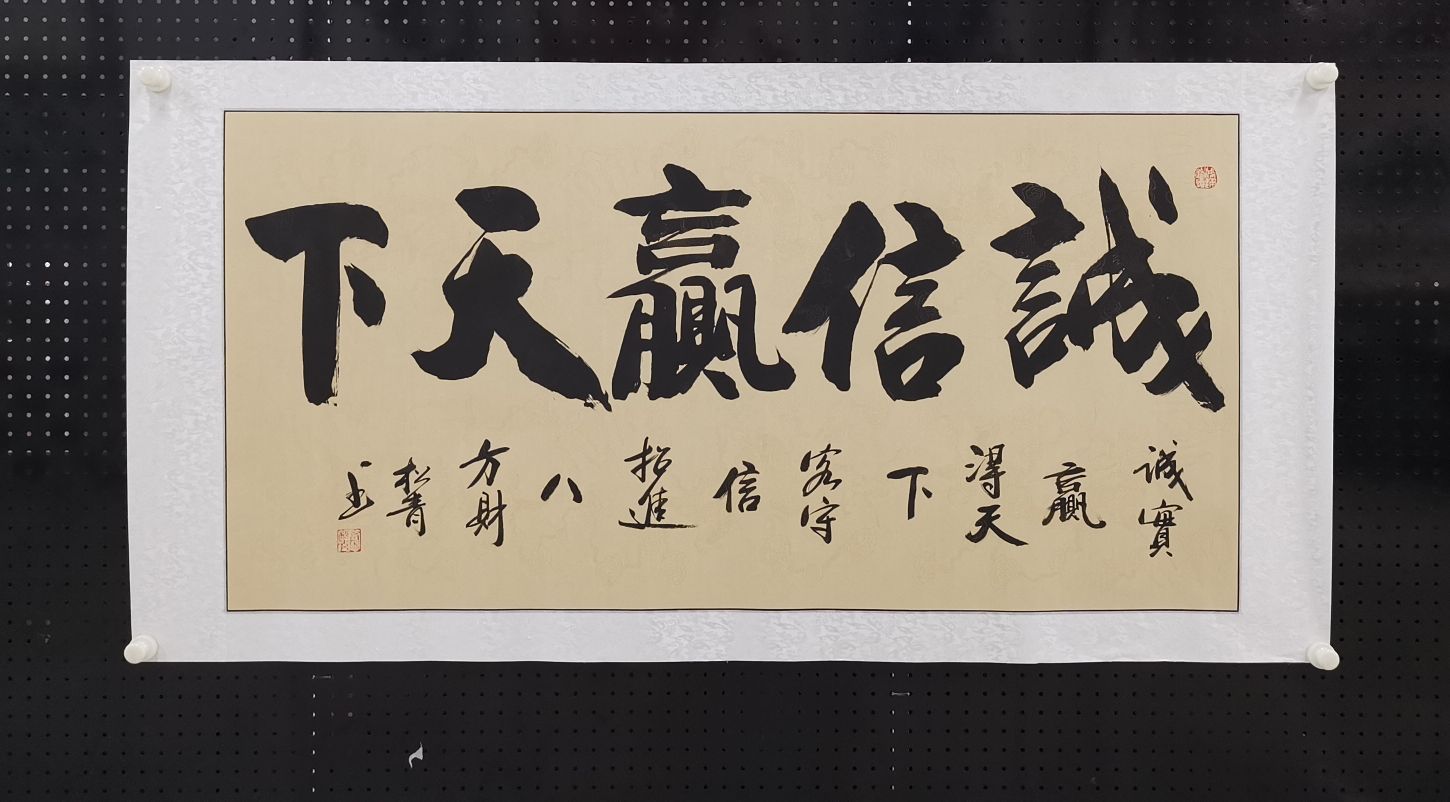 誠信贏天下
誠實
贏
得天
下
客守
信
招進
八
方財
松青